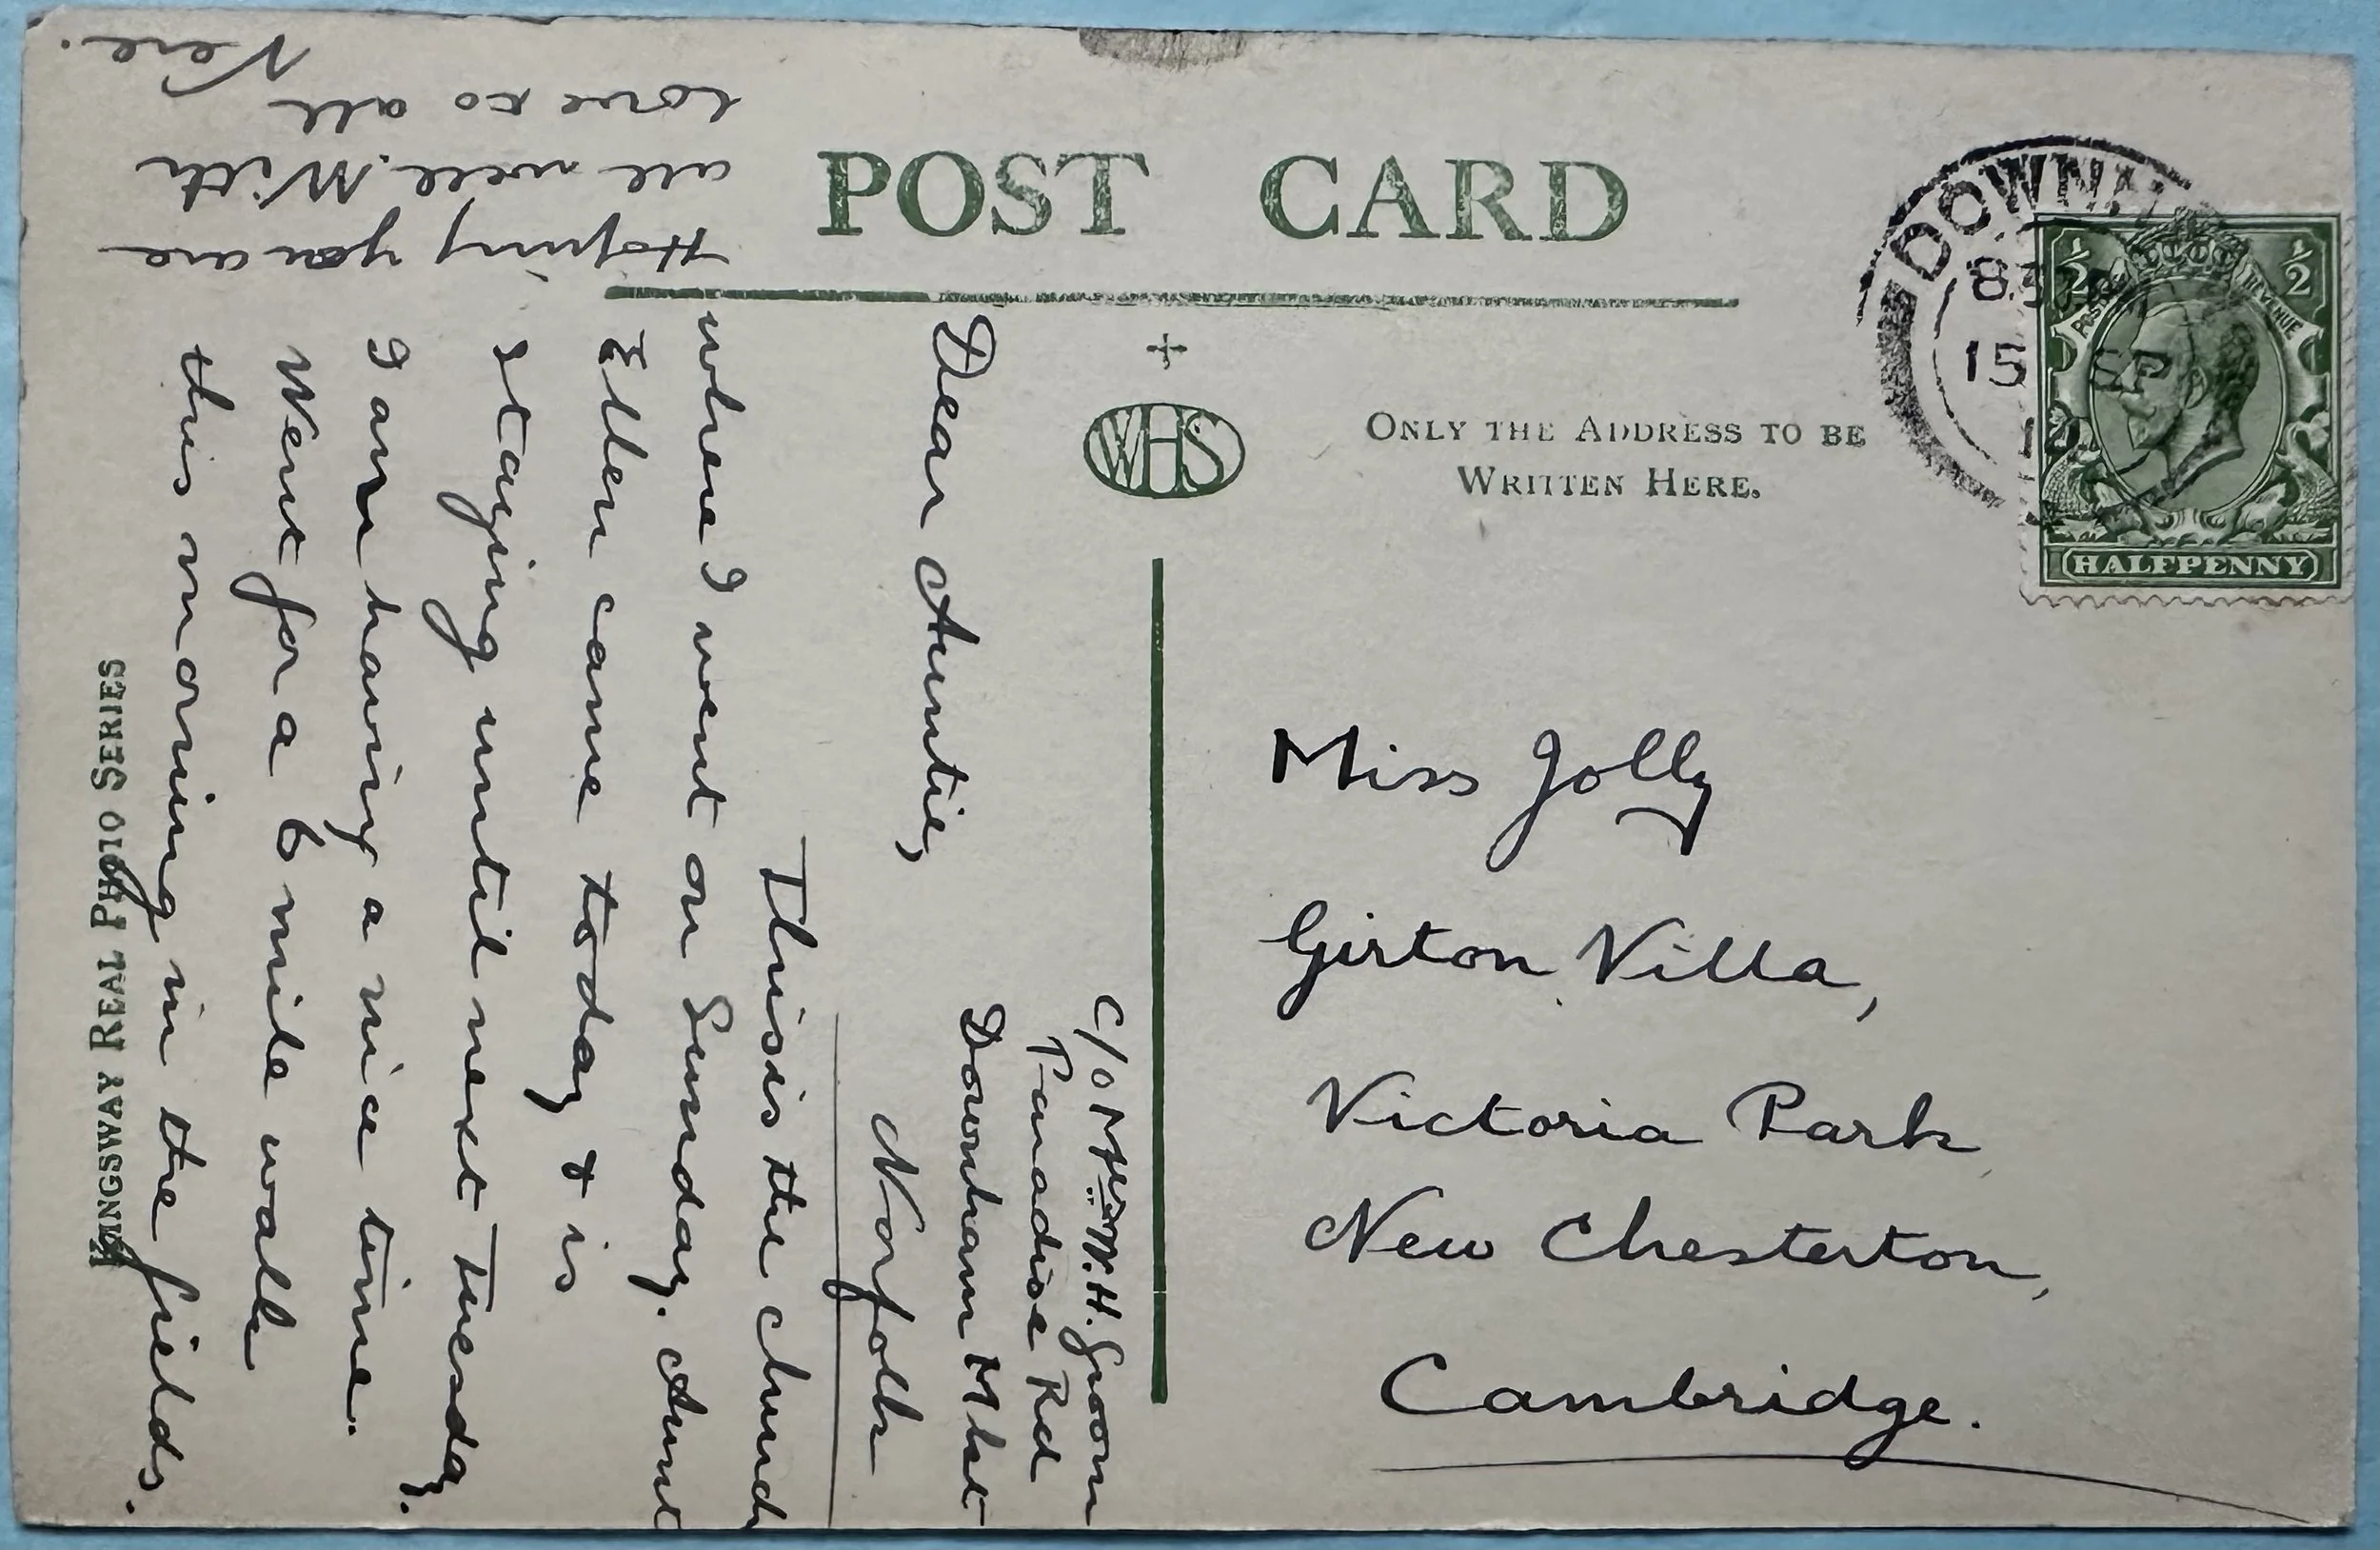 POST CARD
WHS
ONLY THE ADDRESS TO BE
WRITTEN HERE.
DOWNH
8
15
½ ½
POSTAGE REVENUE
HALFPENNY
Miss Jolly
Girton Villa,
Victoria Park
New Chesterton,
Cambridge.
C/o Mrs W. H. Groom
Paradise Rd
Downham Mkt
Norfolk
Dear Auntie,
This is the church
where I went on Sunday. Aunt
Ellen came today & is
staying until next Tuesday.
I am having a nice time.
Went for a 6 mile walk
this morning in the fields.
Hoping you are
all well. With
love to all
Vere.
KINGSWAY REAL PHOTO SERIES